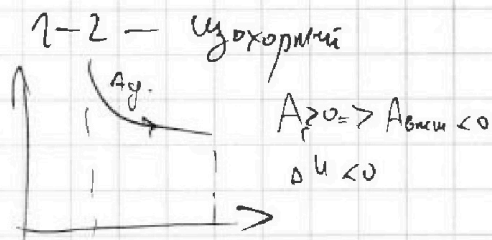 1-2 - Изохорный
Ад.
A_г>0 => A_внеш <0
ΔU <0